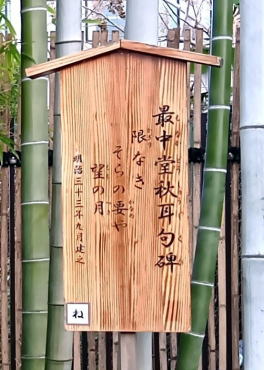 最中堂秋耳句碑
限なき
そらの要や
望の月
明治三十三年九月建之
ね